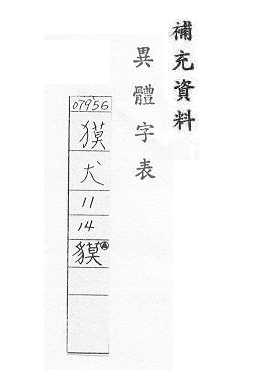 補充資料
異體字表
07956
獏
犬
11
14
貘